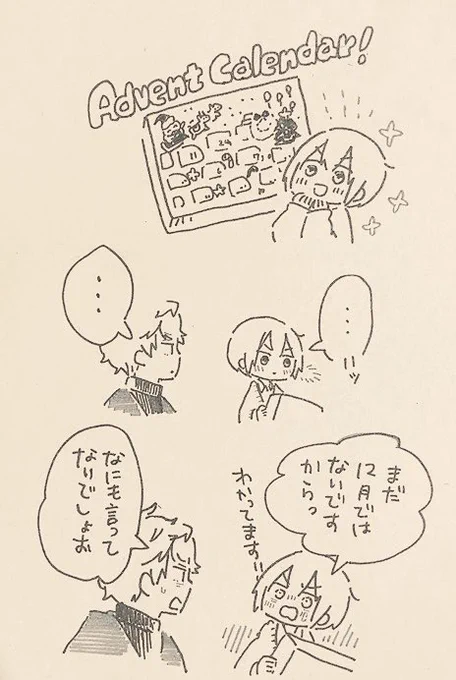 Advent Calendar!
24
11
7
・・・
・・・
まだ
12月では
ないです
からっ
わかってます!!
なにも言って
ないでしょお